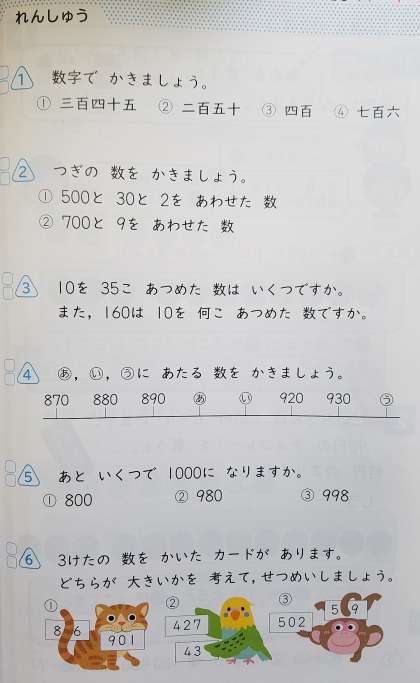 れんしゅう
1 数字で かきましょう。
① 三百四十五 ② 二百五十 ③ 四百 ④ 七百六
2 つぎの 数を かきましょう。
① 500と 30と 2を あわせた 数
② 700と 9を あわせた 数
3 10を 35こ あつめた 数は いくつですか。
また，160は 10を 何こ あつめた 数ですか。
4 あ，い，うに あたる 数を かきましょう。
870 880 890 あ い 920 930 う
5 あと いくつで 1000に なりますか。
① 800 ② 980 ③ 998
6 3けたの 数を かいた カードが あります。
どちらが 大きいかを 考えて，せつめいしましょう。
① ② ③
8 6 901 427 43 502 5 9